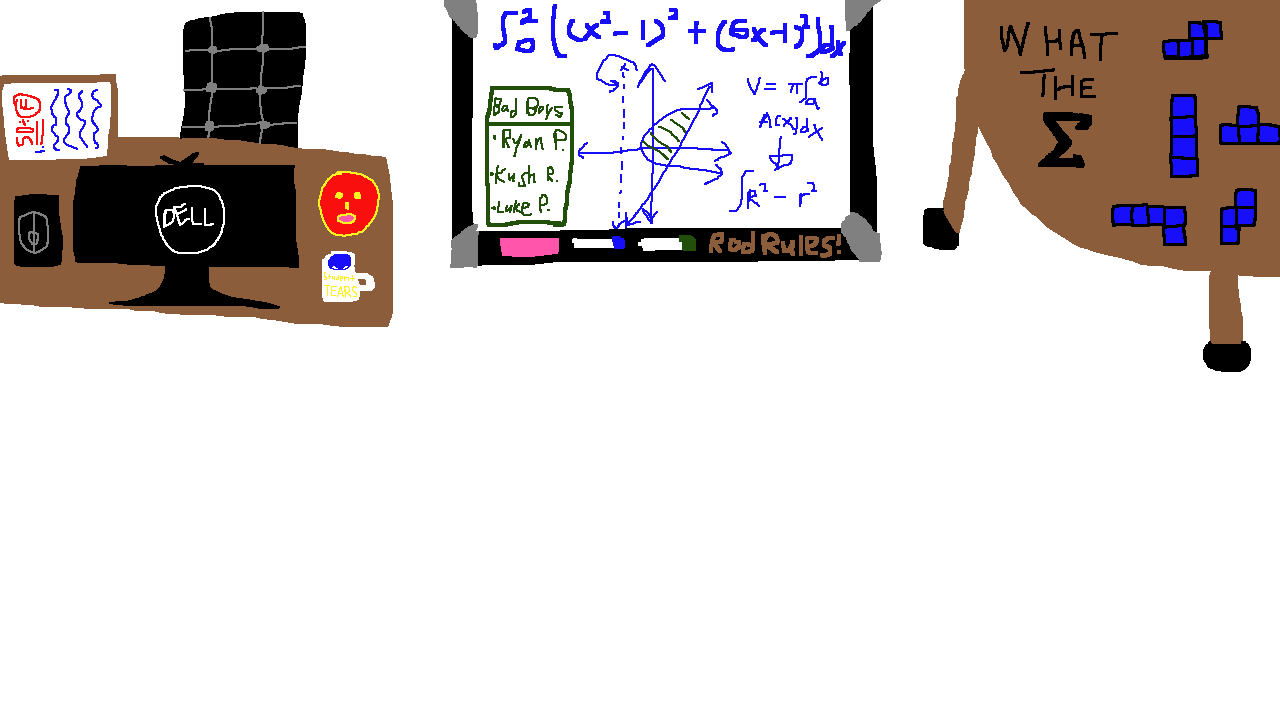 50% F
DELL
STUDENT
TEARS
∫₀² [(x² - 1)² + (6x - 1)²]dx
Bad Boys
• Ryan P.
• Kush R.
• Luke P.
V = π∫ₐᵇ
A(x)dx
∫R² - r²
Rod Rules!
WHAT
THE
Σ